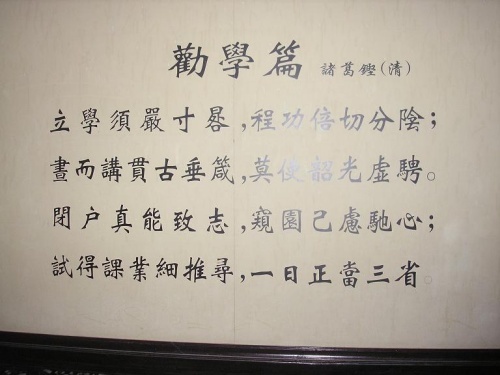 勸學篇 諸葛鏗(清)
立學須嚴寸晷,程功倍切分陰;
晝而講貫古垂箴,莫使韶光虛騁。
閉户真能致志,窺園己慮馳心;
試得課業細推尋,一日正當三省。